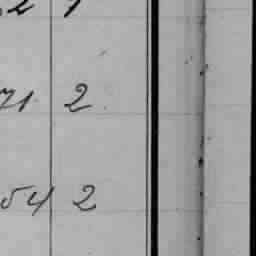 2 1
71 2
54 2